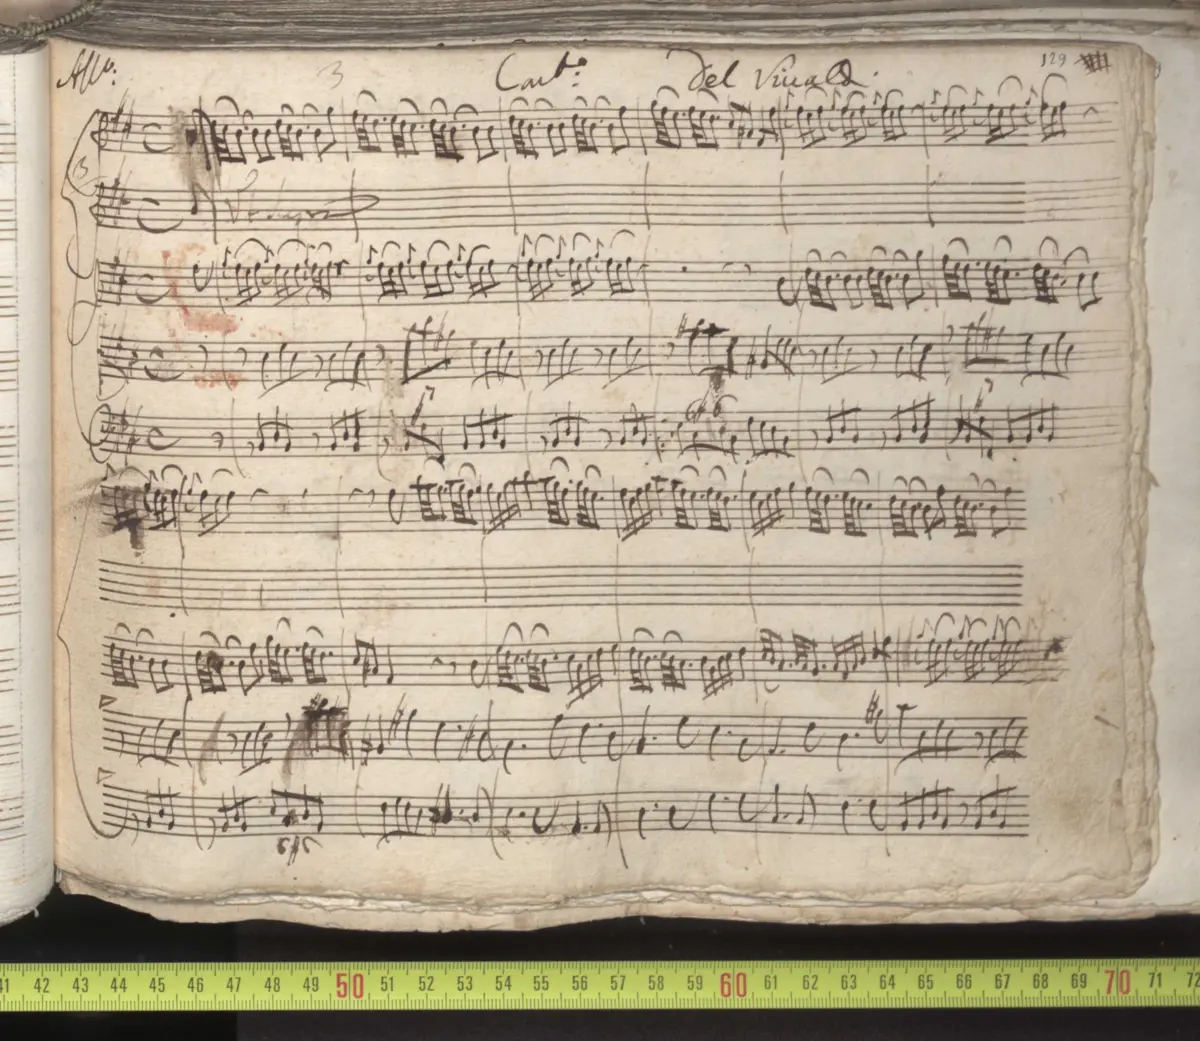 Allo: 3 Conto: Del Viualdi. 129
3
6 6
41 42 43 44 45 46 47 48 49 50 51 52 53 54 55 56 57 58 59 60 61 62 63 64 65 66 67 68 69 70 71 72